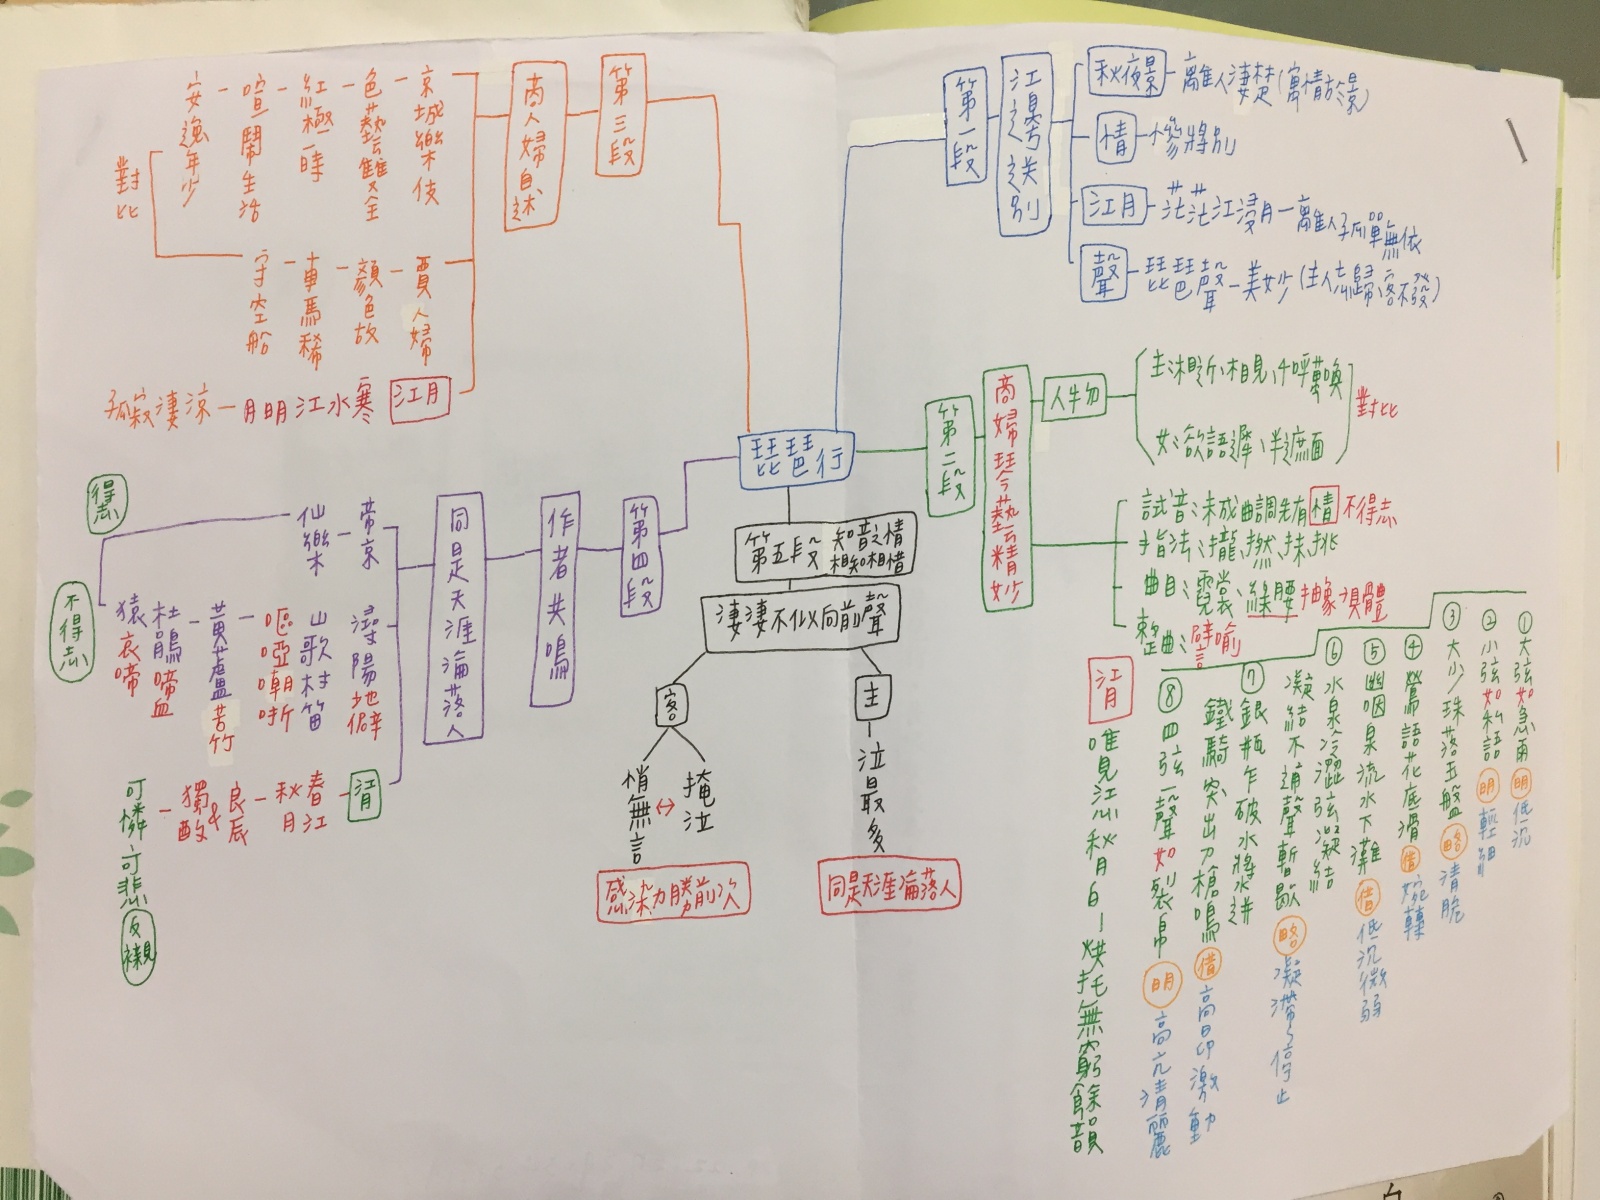 琵琶行
第一段
江邊送別
秋夜景－離人淒楚(寓情於景)
情－慘將別
江月－茫茫江浸月－離人孤單無依
聲－琵琶聲－美妙(主人忘歸、客不發)
第二段
商婦琴藝精妙
人物
主：相近、相見、千呼萬喚
女：欲語遲、半遮面
對比
試音：未成曲調先有情 不得志
指法：攏、撚、抹、挑
曲目：霓裳、綠腰 抽象→具體
整曲：譬喻
①大弦如急雨 明 低沉
②小弦如私語 明 輕細
③大少珠落玉盤 略 清脆
④鶯語花底滑 借 婉轉
⑤幽咽泉流水下灘 借 低沉微弱
⑥水泉冷澀弦凝結
凝結不通聲暫歇 略 凝滯、停止
⑦銀瓶乍破水漿迸
鐵騎突出刀槍鳴 借 高昂激動
⑧四弦一聲如裂帛 明 高亢清麗
江月 唯見江心秋月白－烘托無窮餘韻
第三段
商人婦自述
京城樂伎－色藝雙全－紅極一時－喧鬧生活－安逸年少
賈人婦－顏色故－車馬稀－守空船
對比
江月 月明江水寒－孤寂淒涼
第四段
作者共鳴
同是天涯淪落人
帝京－仙樂
得志
潯陽地僻 山歌村笛 嘔啞嘲哳－黃蘆苦竹－杜鵑啼血 猿哀啼
不得志
江月－春江秋月－良辰&獨酌－可憐可悲 反襯
第五段 知音之情 相知相惜
淒淒不似向前聲
客
掩泣↔悄無言
感染力勝前次
主－泣最多
同是天涯淪落人